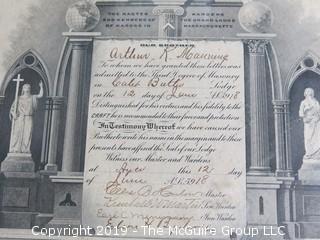 THE MASTER WARDENS
AND MEMBERS OF THE GRAND LODGE
OF MASONS IN MASSACHUSETTS
OUR BROTHER
Arthur K. Manning
To whom we have granted these letters was
admitted to the Third Degree of Masonry
in Caleb Butler Lodge
on the 12 day of June 1918
Distinguished for his virtues and his fidelity to the
CRAFT he is recommended to their favor and protection
In Testimony Whereof we have caused our
Brother to write his name in the margin and to these
presents have affixed the Seal of our Lodge
Witness our Master and Wardens
at Ayer this 12 day
of June 1918
Master
Sen. Warden
Jun. Warden
Copyright 2019 - The McGuire Group LLC